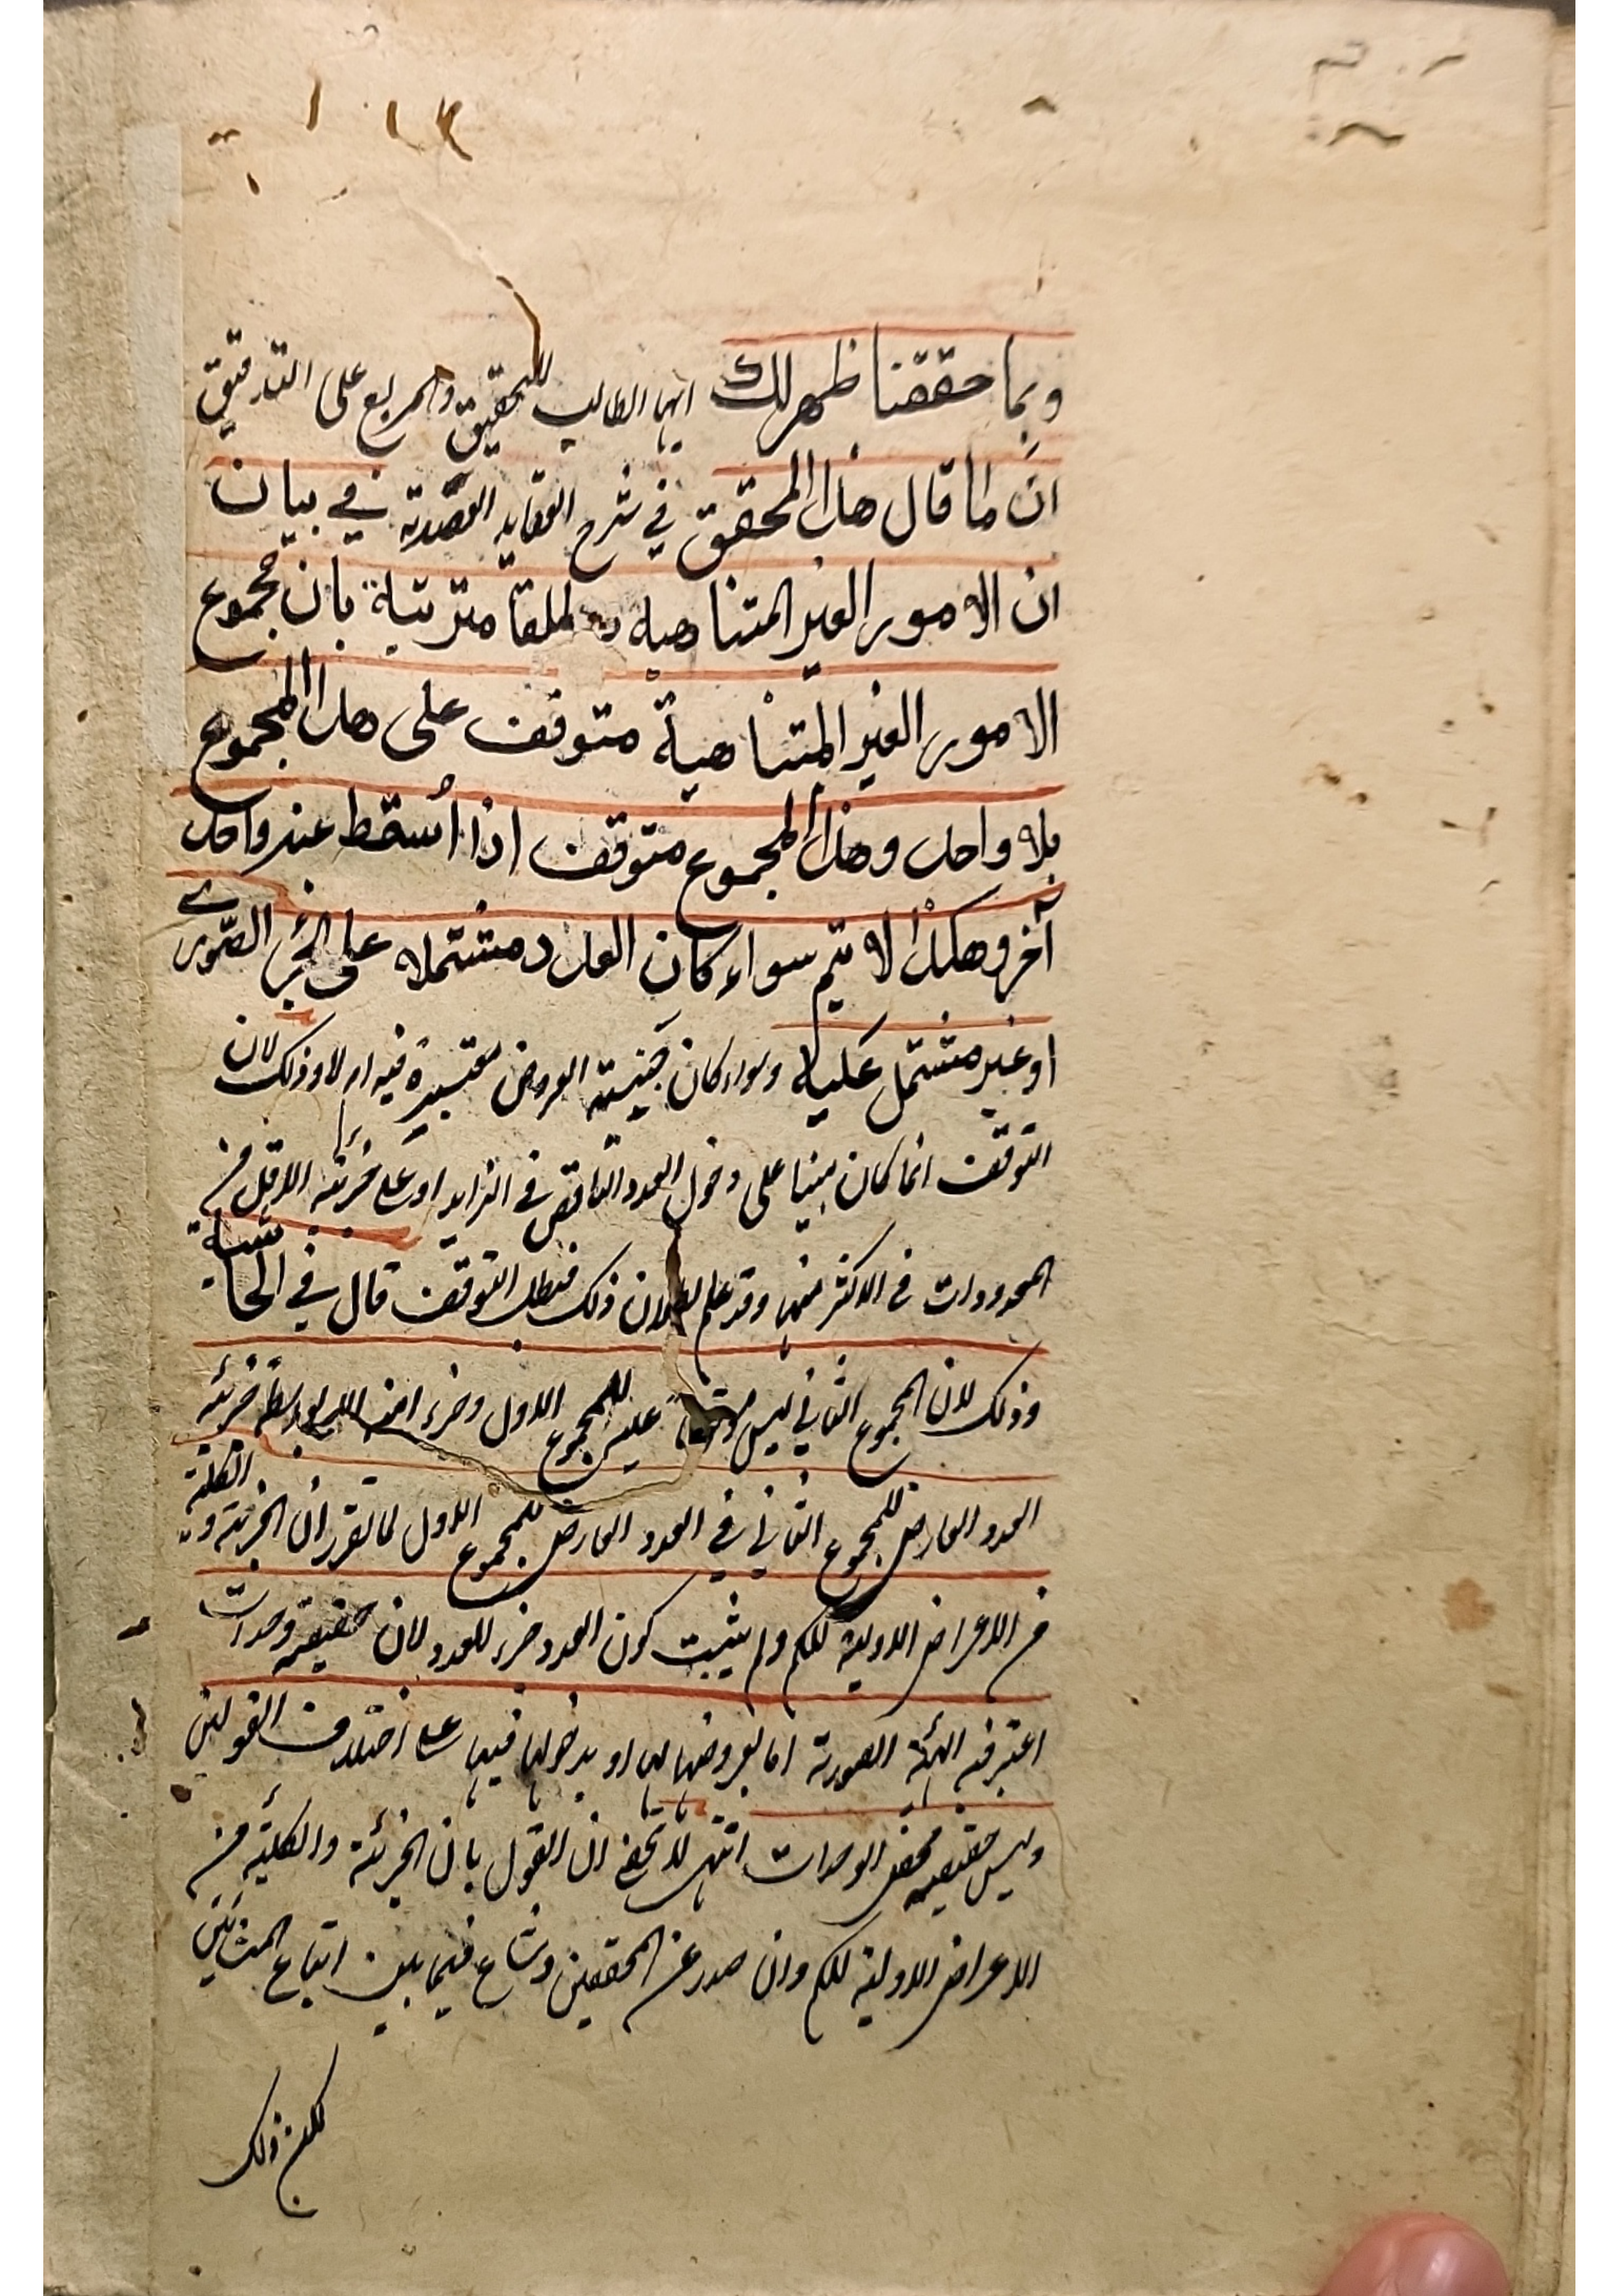 وبما حققنا ظهر لك ايها الطالب للتحقيق والمريع على التدقيق
انّ ما قال هذا المحقق في شرح العقايد العضدية في بيان
ان الامور الغير المتناهية مطلقا مترتبة بان مجموع
الامور الغير المتناهية متوقف على هذا المجموع
بلا واحد وهذا المجموع متوقف اذا اُسقط عنه واحد
آخر وهكذا لا يتم سواء كان العدد مشتملا على الجزء الصّوري
او غير مشتمل عليه وسواء كان حيثية العروض معتبرة فيه ام لا وذلك لان
التوقف انما كان مبنيا على دخول العدد الناقص في الزايد او على جزئية الاقل من
المعدودات في الاكثر منها وقد علم بطلان ذلك فبطل التوقف قال في الحاشية
وذلك لان المجموع الثاني ليس موقوفا عليه للمجموع الاول وجزء امنه الا بواسطة جزئية
العدد العارض للمجموع الثاني في العدد العارض للمجموع الاول لما تقرر ان الجزئية والكلية
من الاعراض الاولية للكم ولم يثبت كون العدد جزء للعدد لان حقيقته وحدات
اعتبر فيه الهيئة الصورية اما بعروضها لها او بدخولها فيها على اختلاف القولين
وليس حقيقته محض الوحدات انتهى لا يخفى ان القول بان الجزئية والكلية من
الاعراض الاولية للكم وان صدر عن المحققين وشاع فيما بين اتباع المشائين
لكن ذلك